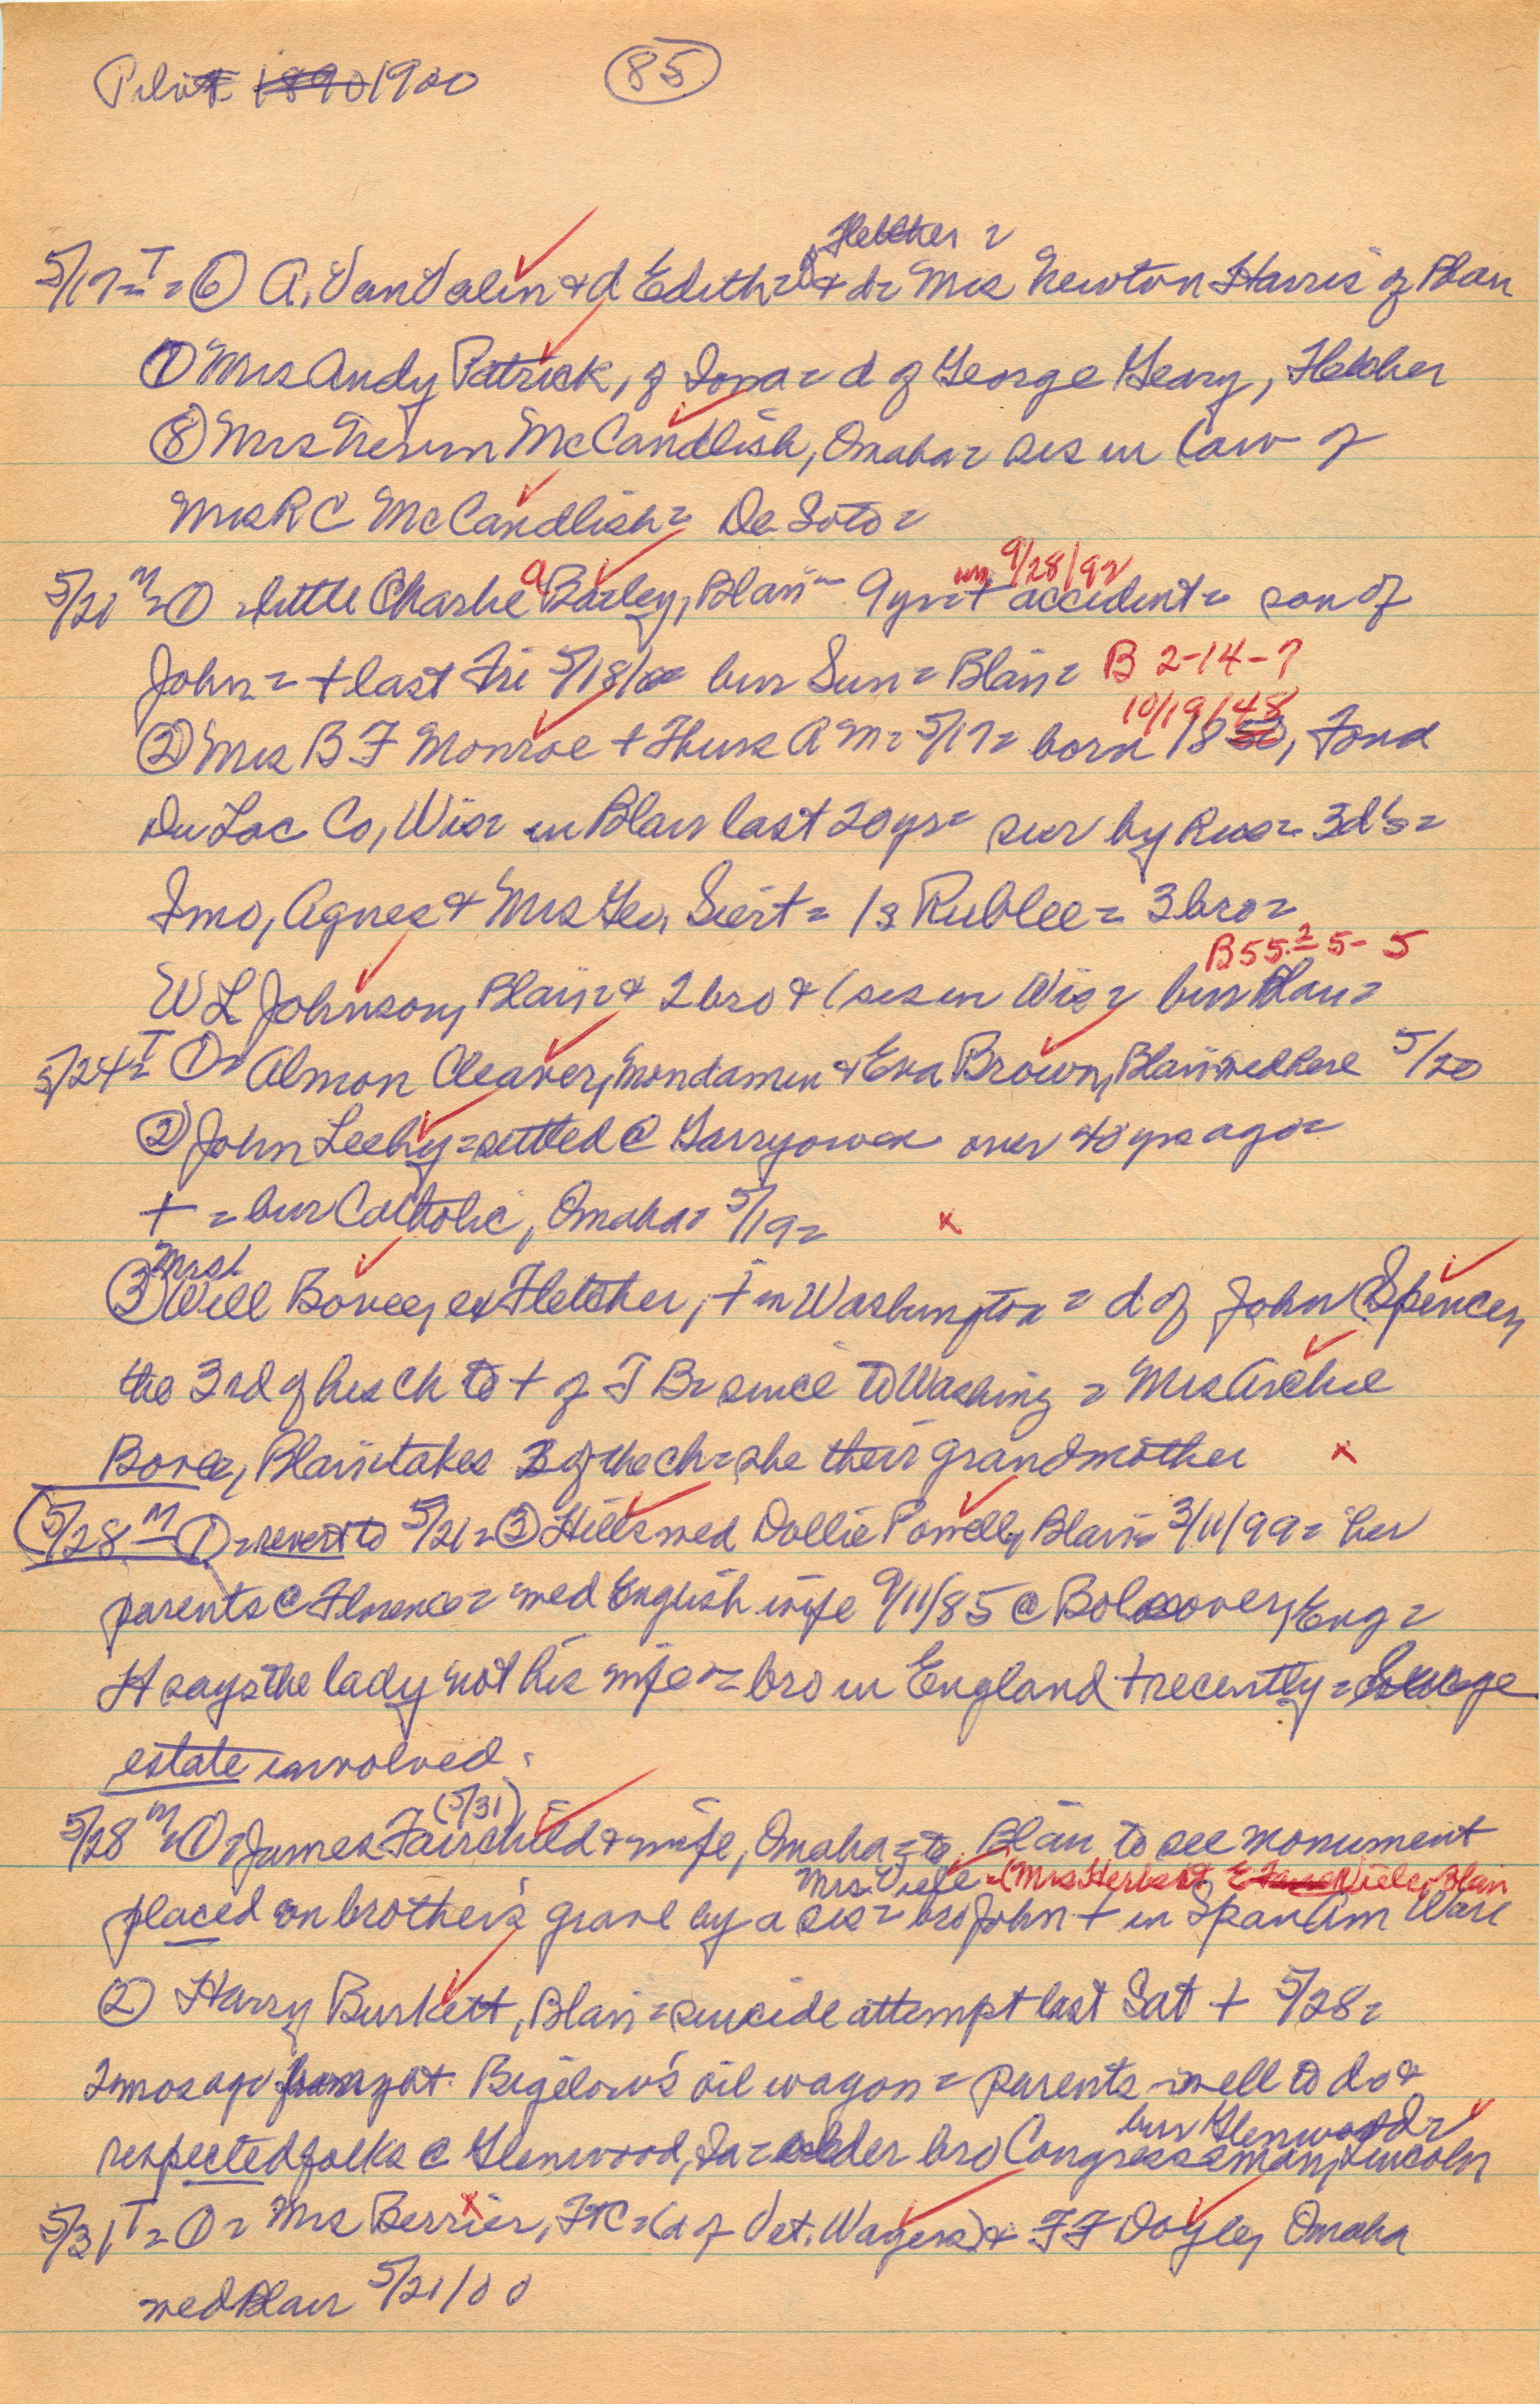 Pilot 1890 1900 (85)
Fletcher =
5/17 = T = ⑥ A. VanValin + d Edith = + d = Mrs Newton Harris of Blair
⑦ Mrs Andy Patrick, of Iowa = d of George Geary, Fletcher
⑧ Mrs McCandlish, Omaha = sis in law of
Mrs R C McCandlish = De Soto =
9/28/92
5/21 M = ① little Charlie Bailey, Blair = 9 yrs + accident = son of
John = + last Fri 5/18/00 bur Sun = Blair = B 2-14-7
10/19/48
② Mrs B F Monroe + Thurs A M = 5/17 = born 1850, Fond
Du Lac Co, Wis = in Blair last 20 yrs = sur by hus = 3 d's =
Imo, Agnes + Mrs Geo, Siert = 1 s Rublee = 3 bro =
B 55 = 5 - 5
W L Johnson, Blair = + 2 bro + 1 sis in Wis = bur Blair =
5/24 = T ① = Almon Cleaver, Mondamin + Eva Brown, Blair = med here 5/20
② John Leehy = settled @ Garryowen over 40 yrs ago =
+ = bur Catholic, Omaha = 5/19 = x
Mrs
③ Will Bovee, ex Fletcher, + in Washington = d of John Spencer,
the 3rd of his ch to + of T B = since to Washing = Mrs Archie
Bovee, Blair = takes 3 of the ch = she their grandmother x
(5/28 M ① = revert to 5/21 = ③ Hills med Dollie Powell, Blair = 3/11/99 = her
parents @ Florence = med English wife 9/11/85 @ Bolsover, Eng =
H says the lady not his wife = bro in England + recently =
estate involved.
(5/31)
5/28 M = ① = James Fairchild + wife, Omaha = to Blair to see monument
Mrs. Viele = (Mrs Herbert E Viele, Blair
placed on brother's grave by a sis = bro John + in Span Am War =
② Harry Burkett, Blair = suicide attempt last Sat + 5/28 =
2 mos ago Bigelow's oil wagon = parents well to do +
bur Glenwood =
respected folks @ Glenwood, Ia = older bro Congressman, Lincoln
5/31 T = ① = Mrs Berrier, FTC = (d of Vet. Wagers) + F F Doyle, Omaha
med Blair 5/21/00